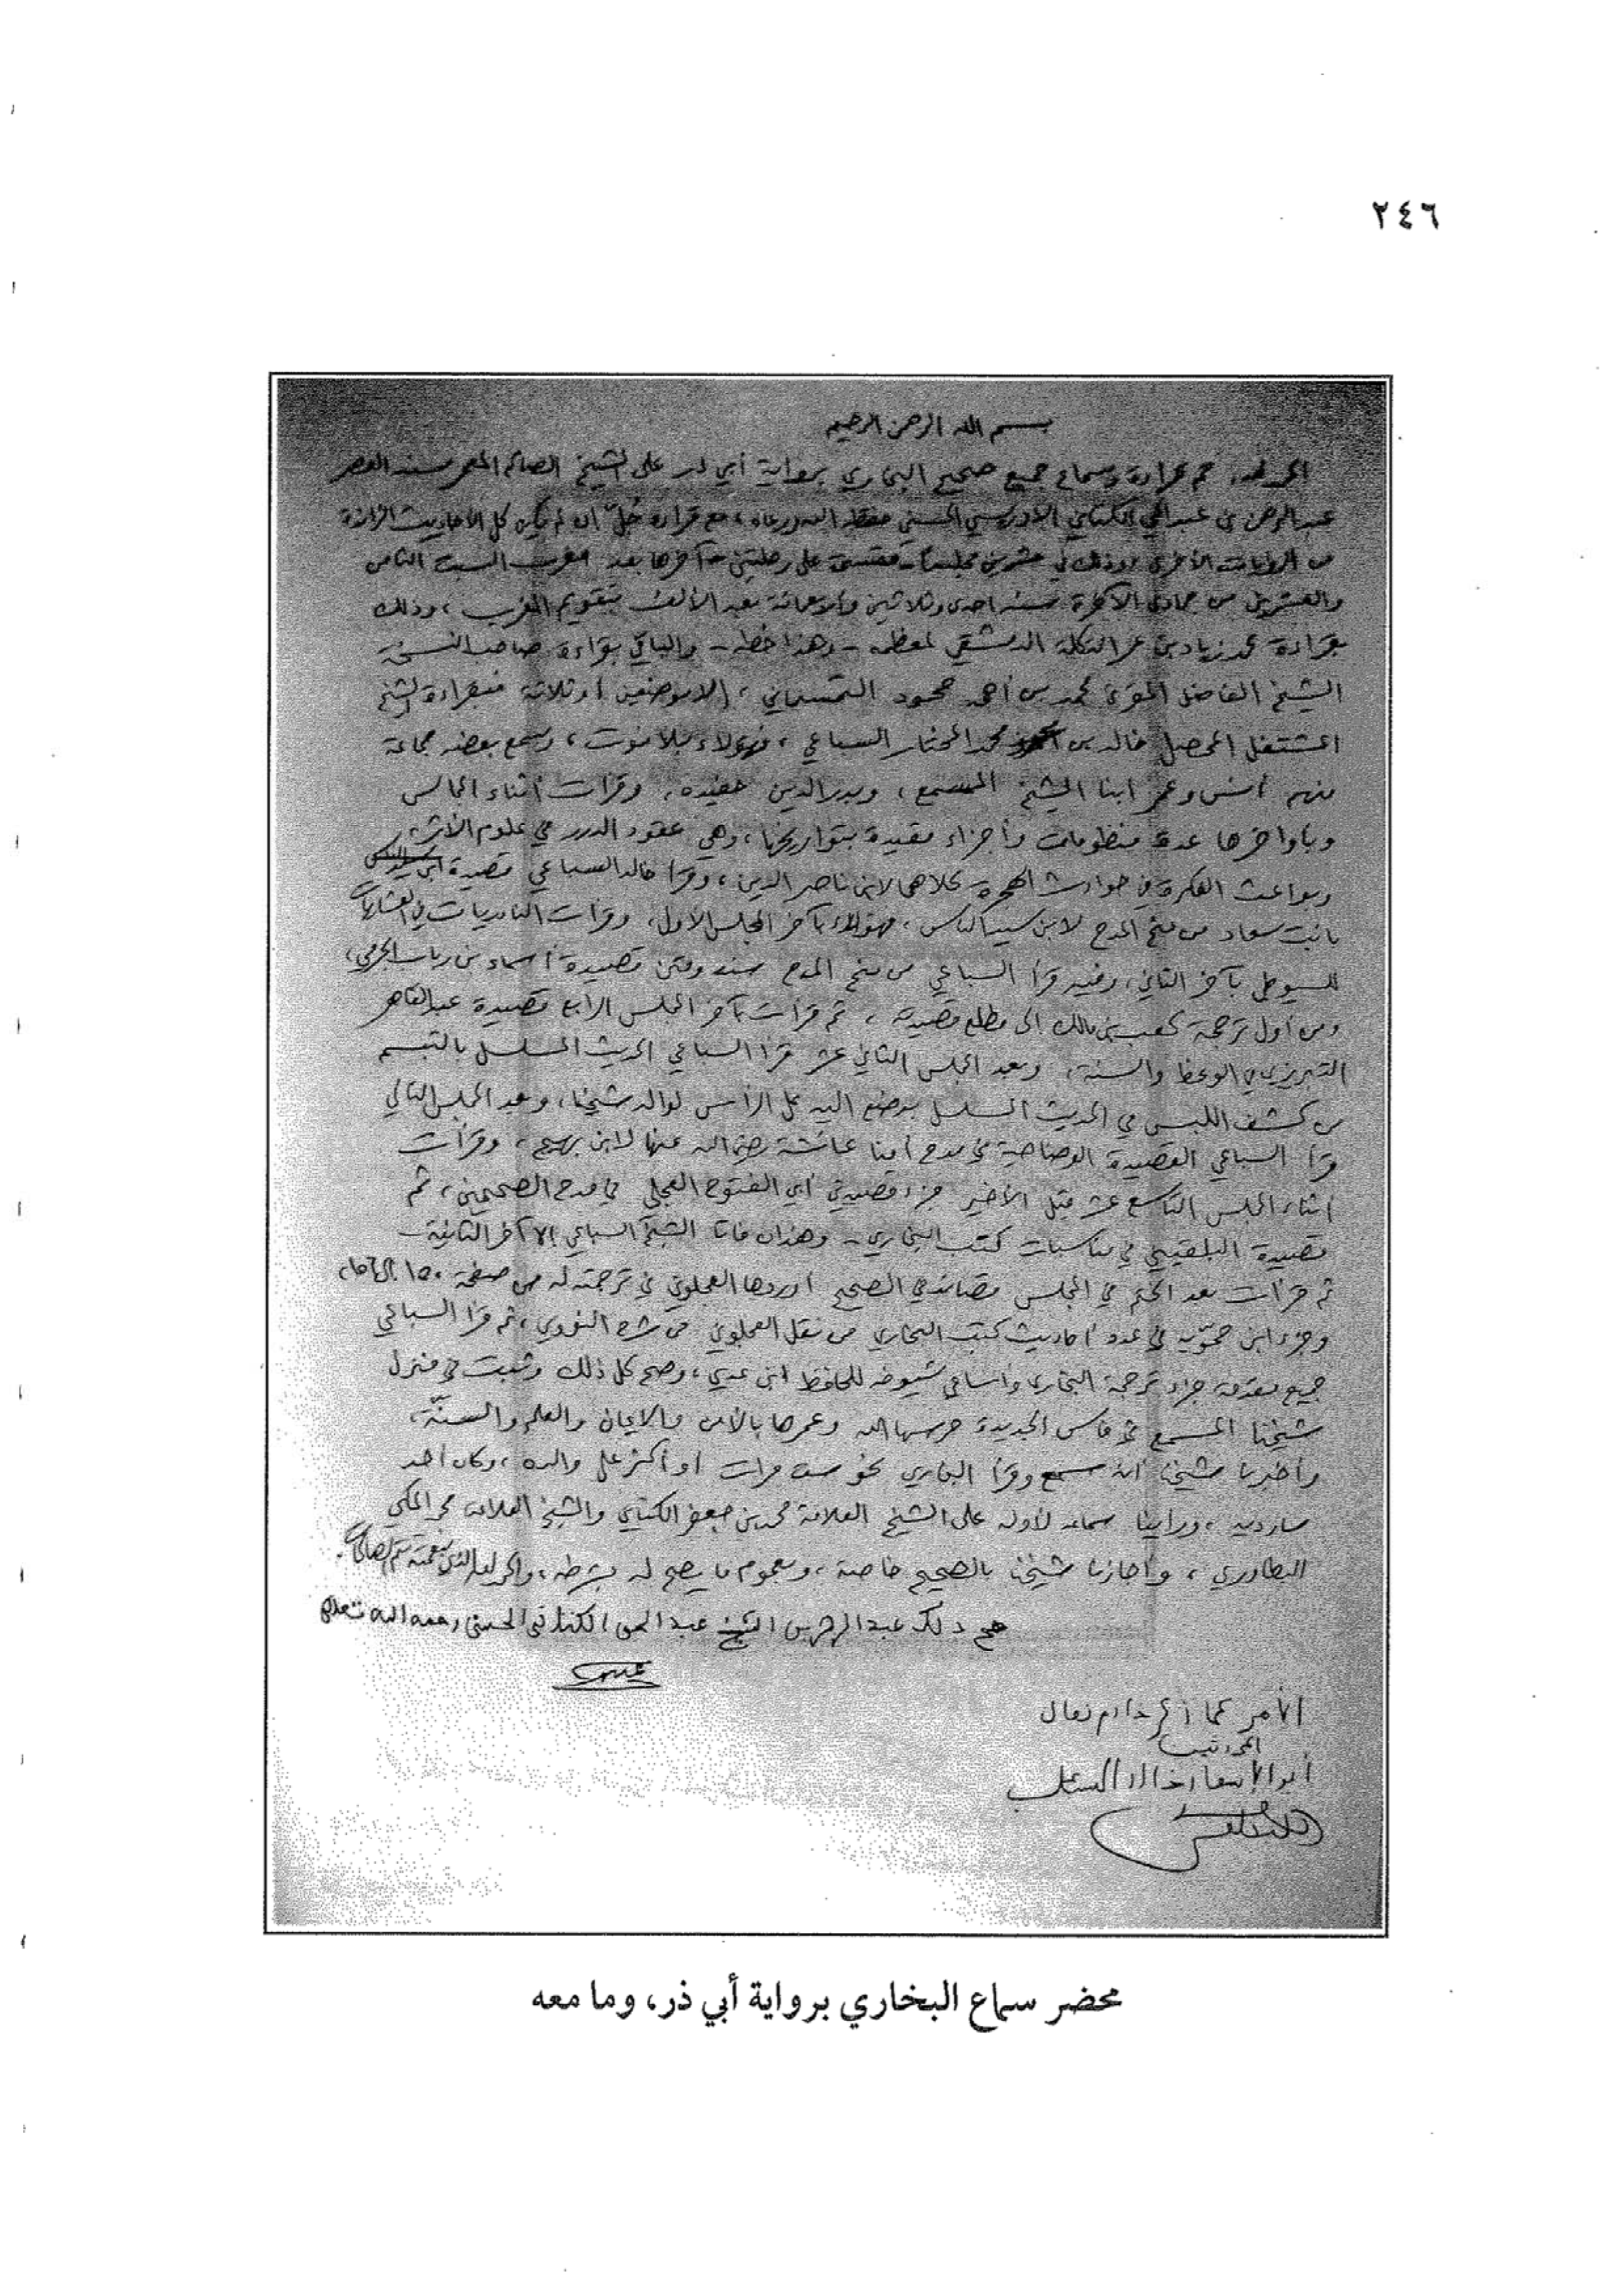 ٢٤٦
بسم الله الرحمن الرحيم
الحمد لله، تم قراءة وسماع جميع صحيح البخاري برواية أبي ذر على الشيخ الصالح المعمر مسند العصر
عبد الرحمن بن عبد الحي الكتاني الإدريسي الحسني حفظه الله ورعاه، مع قراءة جُلّ إن لم يكن كل الأحاديث الزائدة
من الروايات الأخرى، وذلك في عشرين مجلسا مقسمة على رحلتين آخرها بعد مغرب السبت الثامن
والعشرين من جمادى الآخرة سنة إحدى وثلاثين وأربعمائة بعد الألف بتقويم المغرب، وذلك
بقراءة محمد زياد بن عمر التكلة الدمشقي لمعظمه - وهذا خطه - والباقي بقراءة صاحب النسخة
الشيخ الفاضل المقرئ محمد بن أحمد محمود التمسماني، إلا موضعين أو ثلاثة فبقراءة الشيخ
المشتغل المحصل خالد بن محمد المختار السباعي، فهؤلاء بلا فوت، وسمع بعضه جماعة
منهم أنس وعمر ابنا الشيخ المسمع، وبدر الدين حفيده، وقرأت أثناء المجالس
وبأواخرها عدة منظومات وأجزاء مقيدة بتواريخها، وهي عقود الدرر في علوم الأثر،
وبواعث الفكرة في حوادث الهجرة كلاهما لابن ناصر الدين، وقرأ خالد السباعي قصيدة
بانت سعاد من منح المدح لابن سيد الناس، فهؤلاء بآخر المجلس الأول، وقرأت النادريات في العشاريات
للسيوطي بآخر الثاني، وفيه قرأ السباعي من منح المدح سند ومتن قصيدة أسماء بن رباب الجرمي،
ومن أول ترجمة كعب بن مالك إلى مطلع قصيدته، ثم قرأت بآخر المجلس الرابع قصيدة عبد القاهر
التبريزي في الوعظ والسنة، وبعد المجلس الثاني عشر قرأ السباعي الحديث المسلسل بالتبسم
من كشف اللبس في الحديث المسلسل بوضع اليد على الرأس لوالد شيخنا، وبعد المجلس التالي
قرأ السباعي القصيدة الوضاحية في مدح أمنا عائشة رضي الله عنها لابن بهيج، وقرأت
أثناء المجلس التاسع عشر قبل الأخير جزء قصيدتي أبي الفتوح العجلي في مدح الصحيحين، ثم
قصيدة البلقيني في مناسبات كتب البخاري - وهذان فاتا الشيخ السباعي إلا آخر الثانية -
ثم قرأت بعد الختم في المجلس قصائد في الصحيح أوردها العجلوني في ترجمته له من صفحة ١٥٠ إلى
وجزء ابن حمّويه في عدد أحاديث كتب البخاري من نقل العجلوني من شرح النووي، ثم قرأ السباعي
جميع مقدمة جزء ترجمة البخاري وأسامي شيوخه للحافظ ابن عدي، وصح كل ذلك وثبت في منزل
شيخنا المسمع في فاس الجديدة حرسها الله وعمرها بالأمن والإيمان والعلم والسنّة،
وأخبرنا شيخنا أنه سمع وقرأ البخاري نحو ست مرات أو أكثر على والده، وكان أحد
سارديه، ورأينا سماعه لأوله على الشيخ العلامة محمد بن جعفر الكتاني والشيخ العلامة محمد المكي
البطاوري، وأجازنا شيخنا بالصحيح خاصة، وبعموم ما يصح له بشرطه، والحمد لله الذي بنعمته تتم الصالحات.
صح ذلك عبد الرحمن بن الشيخ عبد الحي الكتاني الحسني رحمه الله تعالى
الأمر كما ذكر
أبو الإسعاد خالد السباعي
محضر سماع البخاري برواية أبي ذر، وما معه